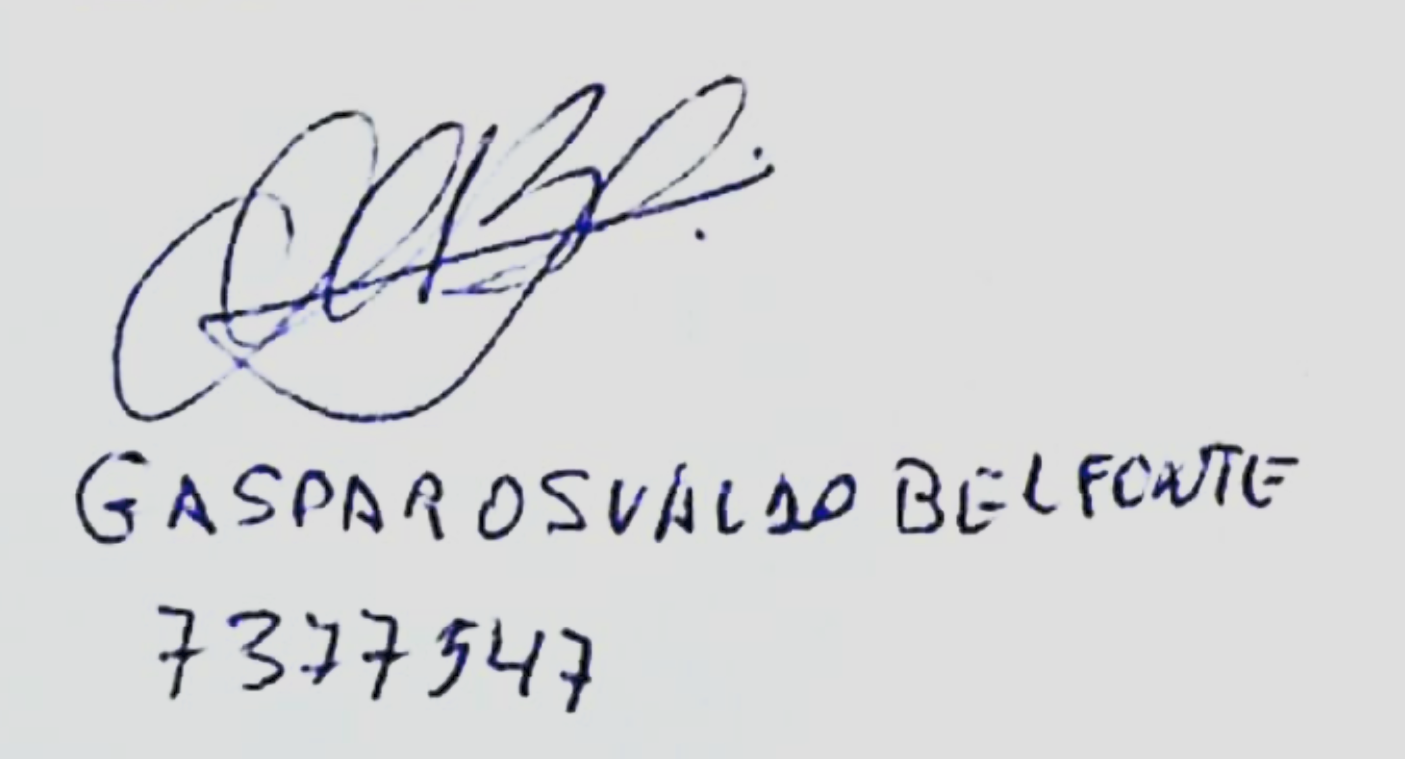 GASPAR OSVALDO BELFONTE
7377547